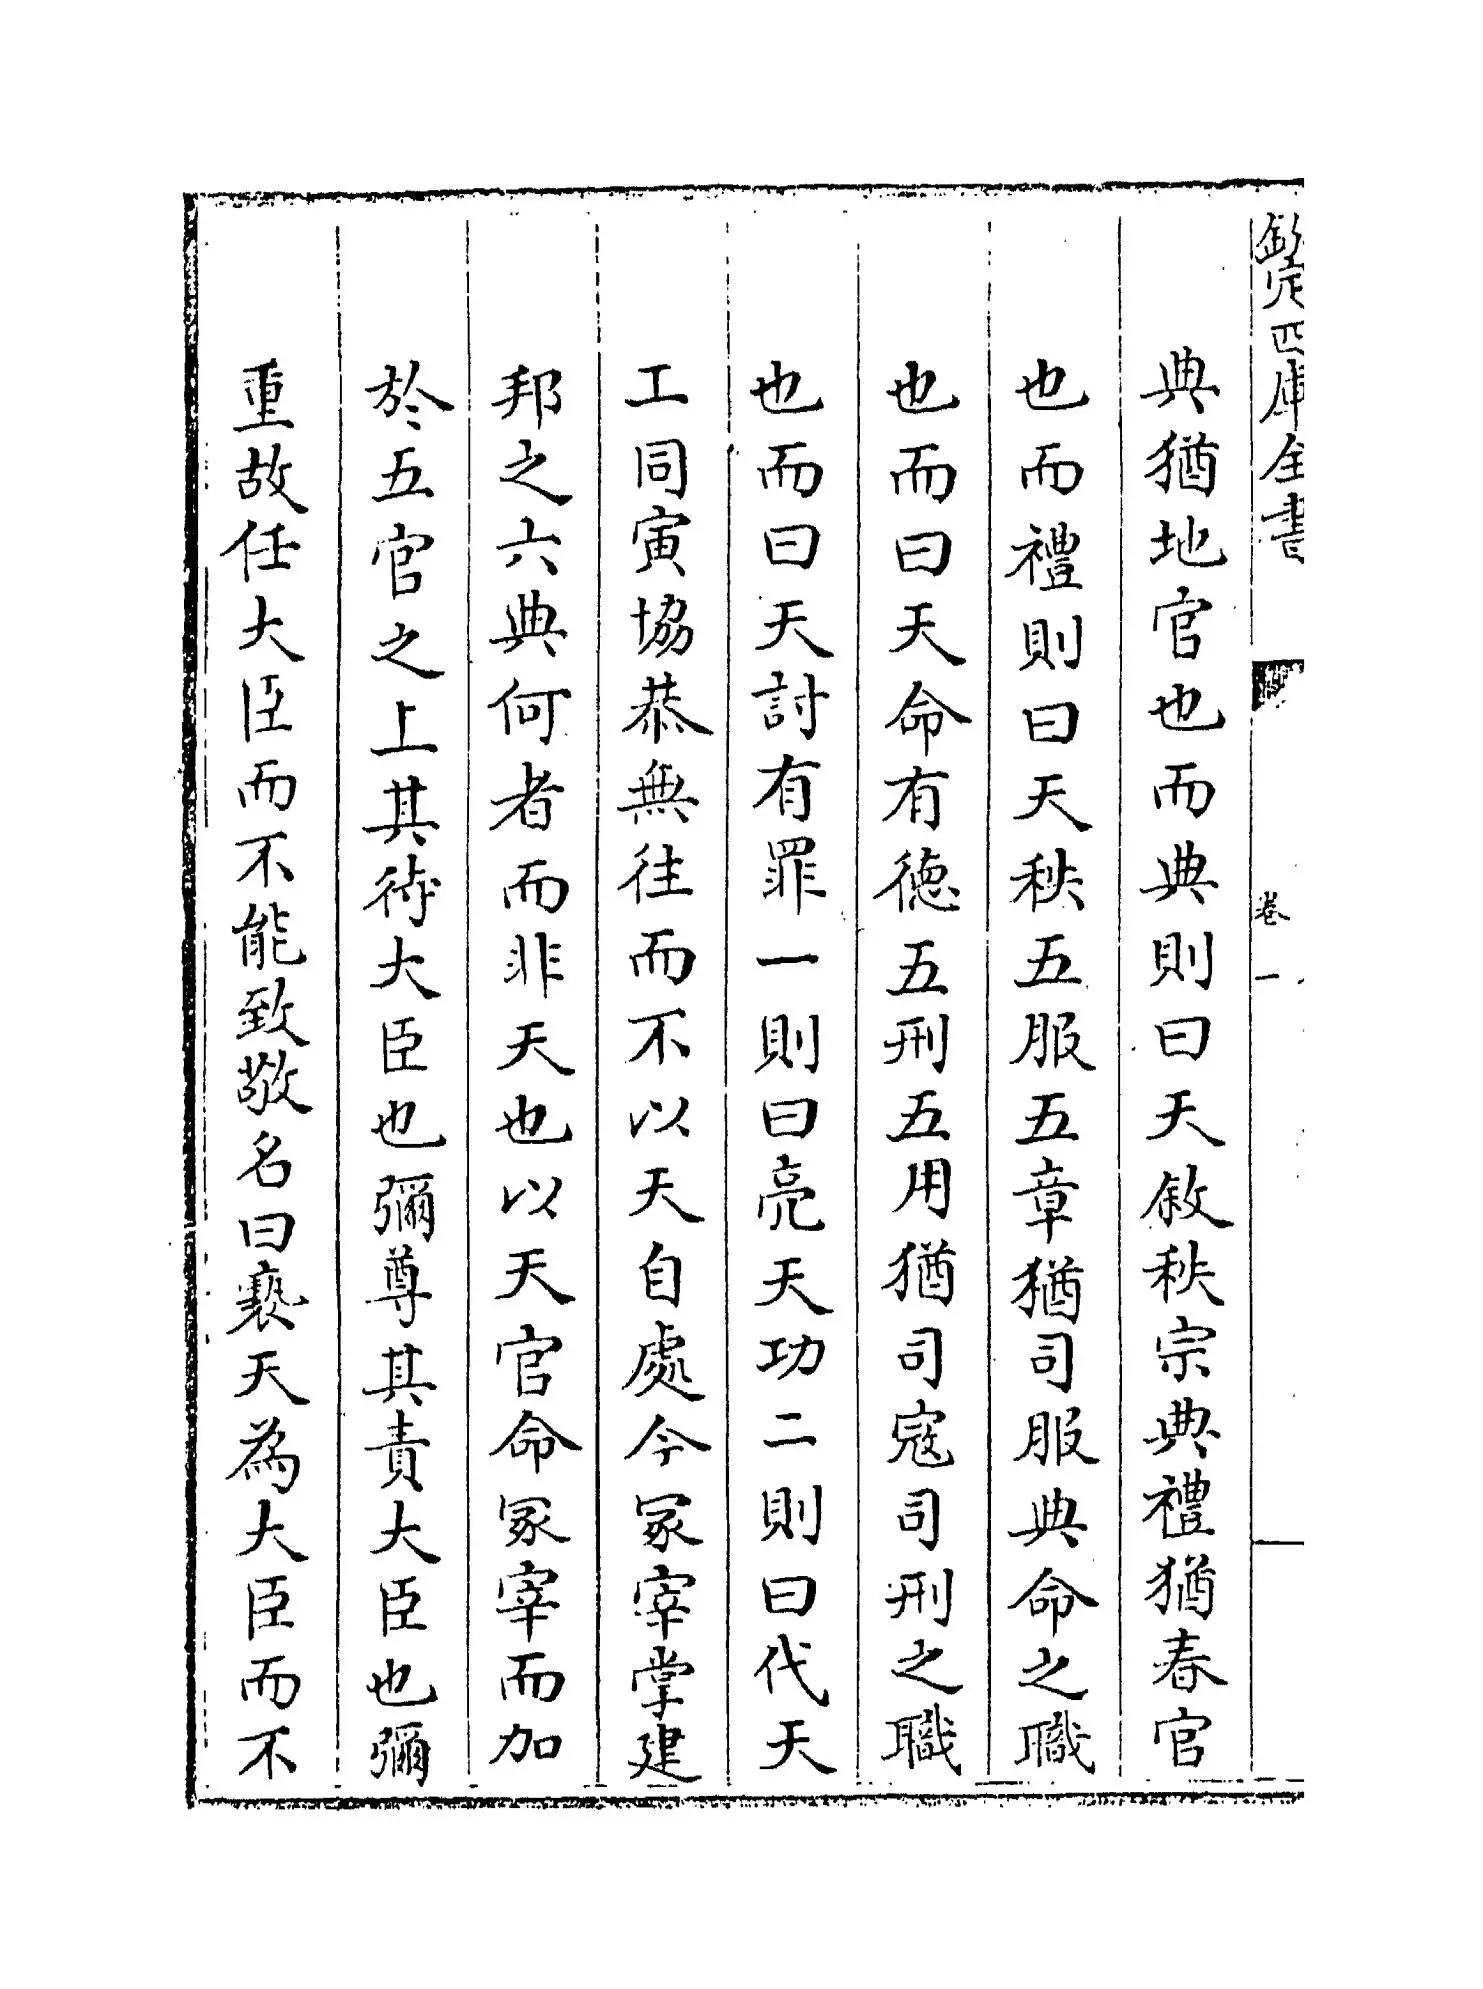 欽定四庫全書
卷一
典猶地官也而典則曰天敘秩宗典禮猶春官
也而禮則曰天秩五服五章猶司服典命之職
也而曰天命有德五刑五用猶司寇司刑之職
也而曰天討有罪一則曰亮天功二則曰代天
工同寅協恭無往而不以天自處今冢宰掌建
邦之六典何者而非天也以天官命冢宰而加
於五官之上其待大臣也彌尊其責大臣也彌
重故任大臣而不能致敬名曰褻天為大臣而不